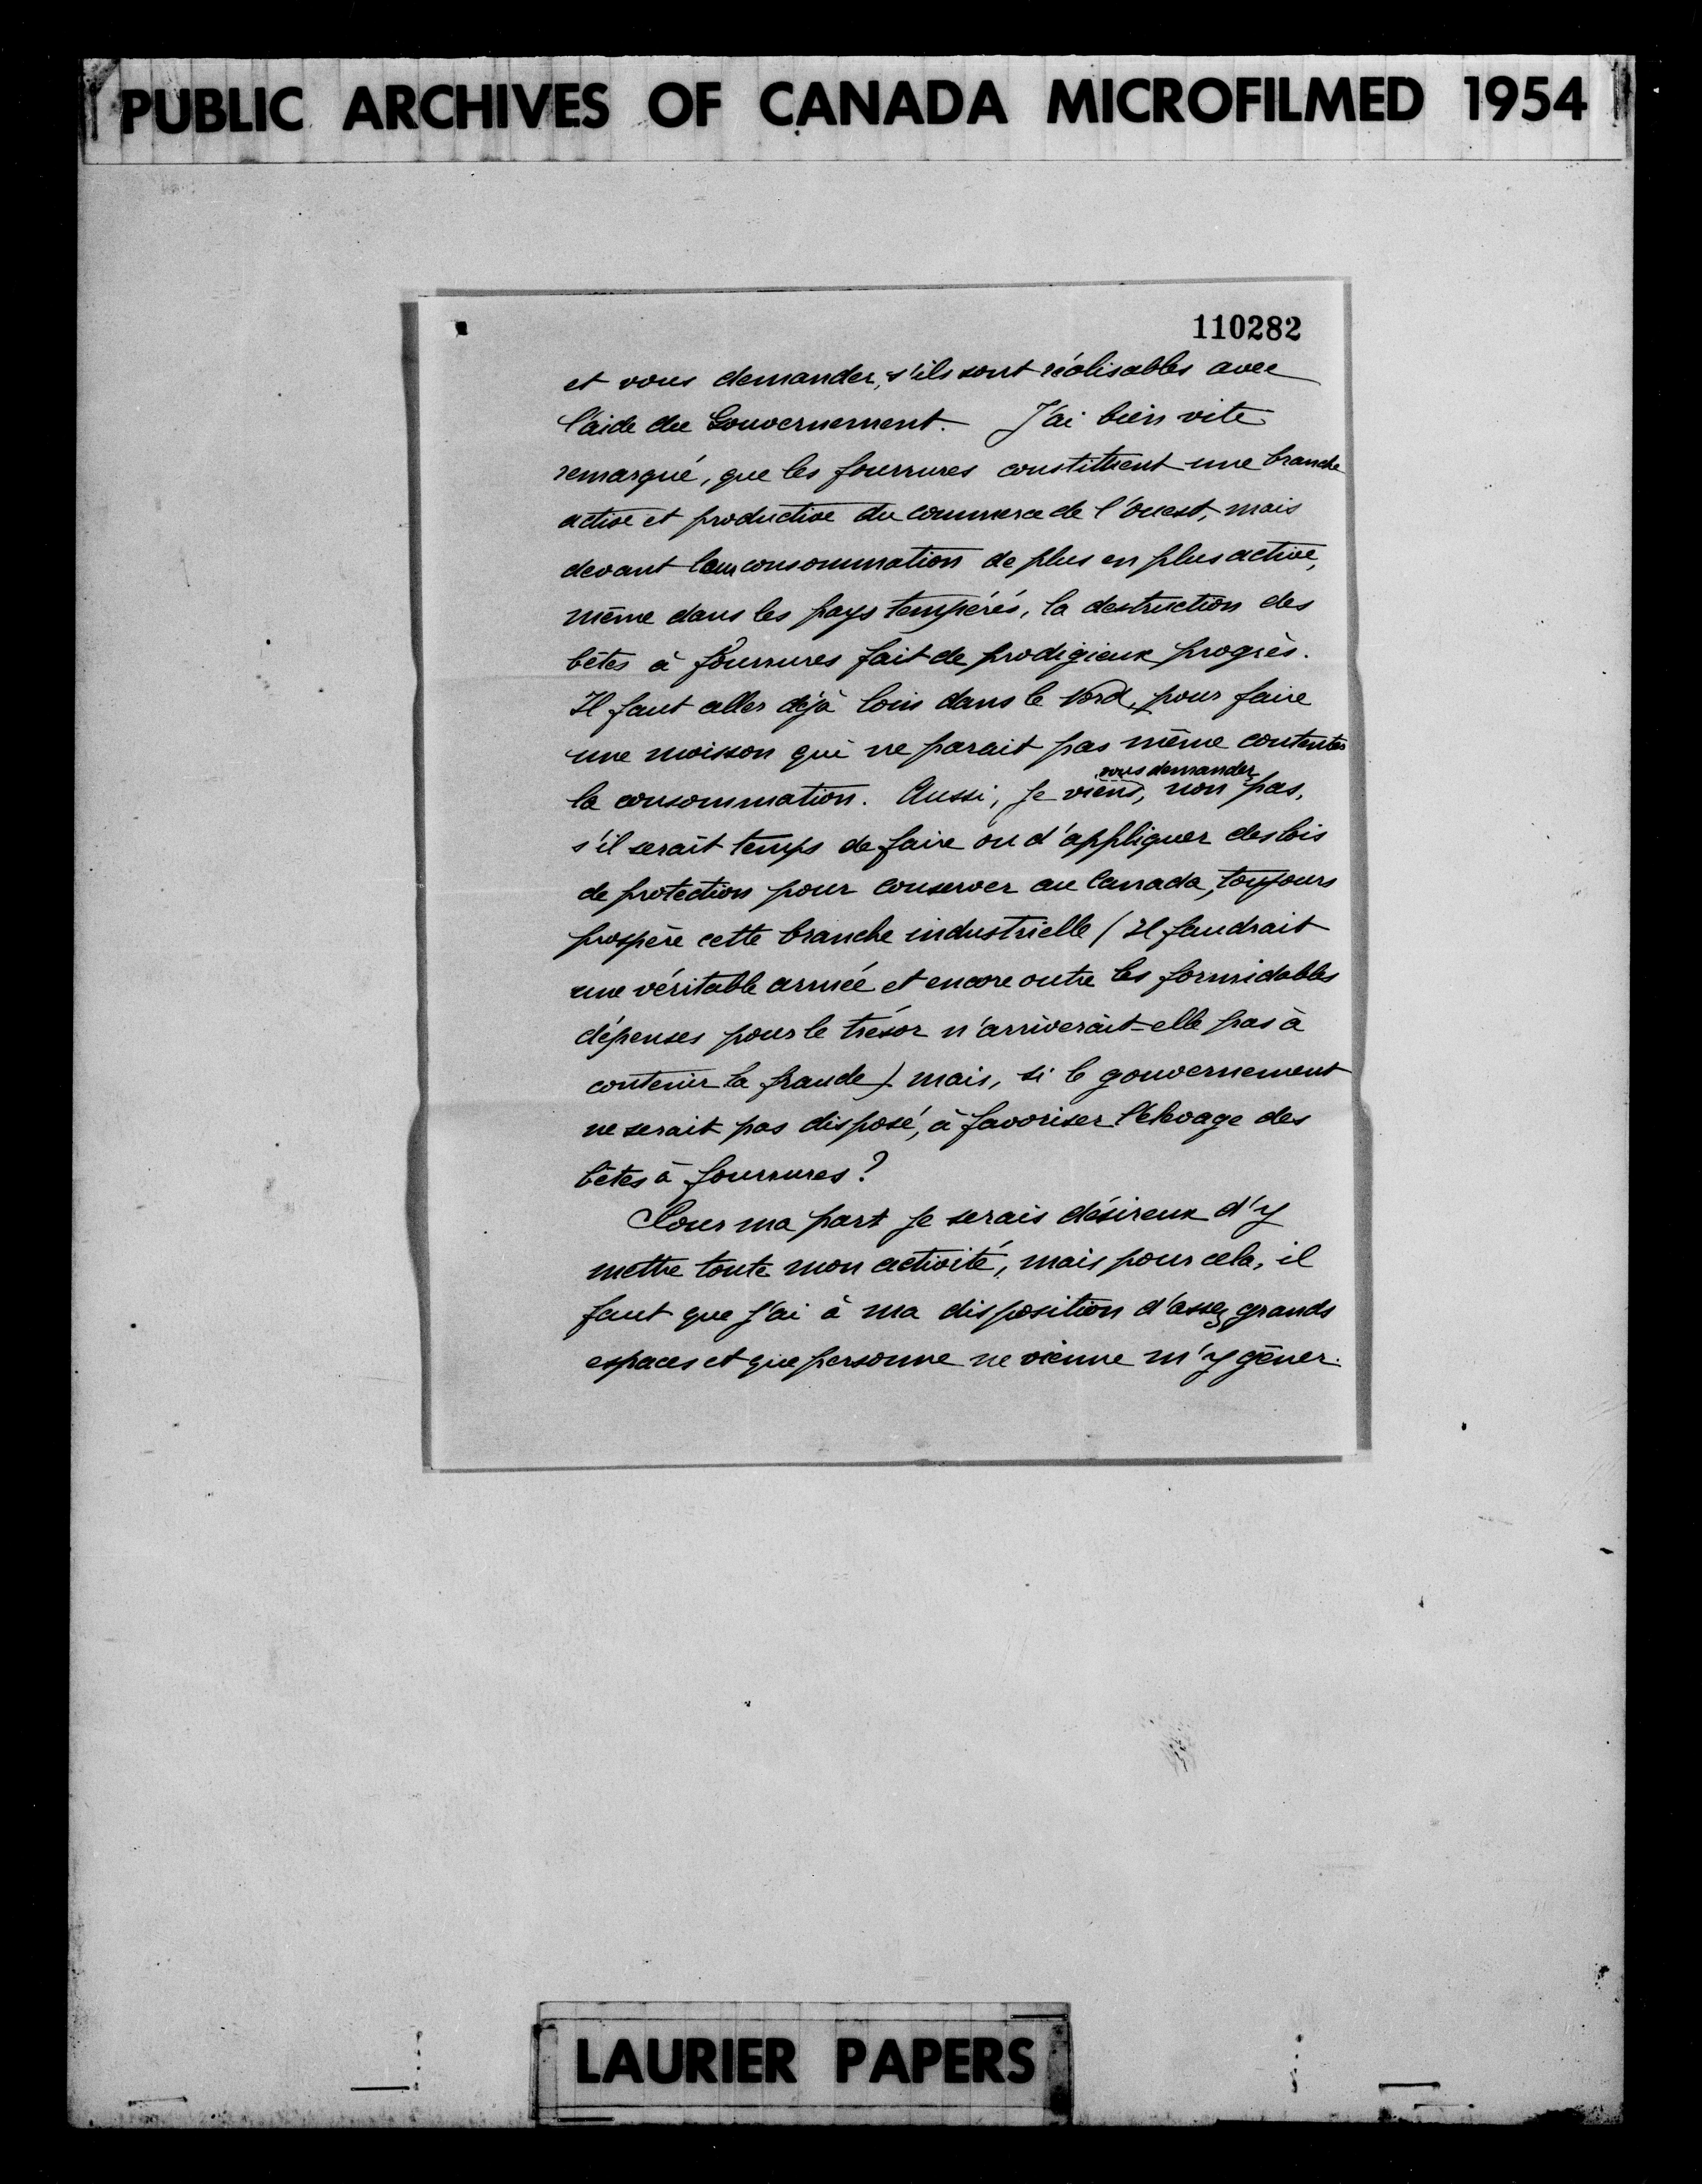 PUBLIC ARCHIVES OF CANADA MICROFILMED 1954
110282
et vous demander, s'ils sont réalisables avec
l'aide du Gouvernement. J'ai bien vite
remarqué, que les fourrures constituent une branche
active et productive du commerce de l'ouest, mais
devant leur consommation de plus en plus active,
même dans les pays tempérés, la destruction des
bêtes à fourrures fait de prodigieux progrès.
Il faut aller déjà loin dans le Nord, pour faire
une moisson qui ne parait pas même contenter
vous demander
la consommation. Aussi, je viens, non pas,
s'il serait temps de faire ou d'appliquer des lois
de protection pour conserver au Canada, toujours
prospère cette branche industrielle (Il faudrait
une véritable armée et encore outre les formidables
dépenses pour le trésor n'arriverait-elle pas à
contenir la fraude) mais, si le gouvernement
ne serait pas disposé, à favoriser l'élevage des
bêtes à fourrures?
Pour ma part je serais désireux d'y
mettre toute mon activité, mais pour cela, il
faut que j'ai à ma disposition d'assez grands
espaces et que personne ne vienne m'y gêner.
LAURIER PAPERS